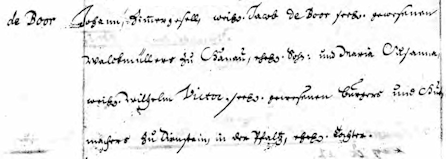 de Boor Johann, Zimmergesell, weyl. Jacob de Boor seel. gewesenen
Walckmüllers zu Hanau, ehel. Sohn: und Maria Susanna,
weyl. Wilhelm Victor. seel. gewesenen burgers und
machers zu in der Pfaltz, ehel. Tochter.